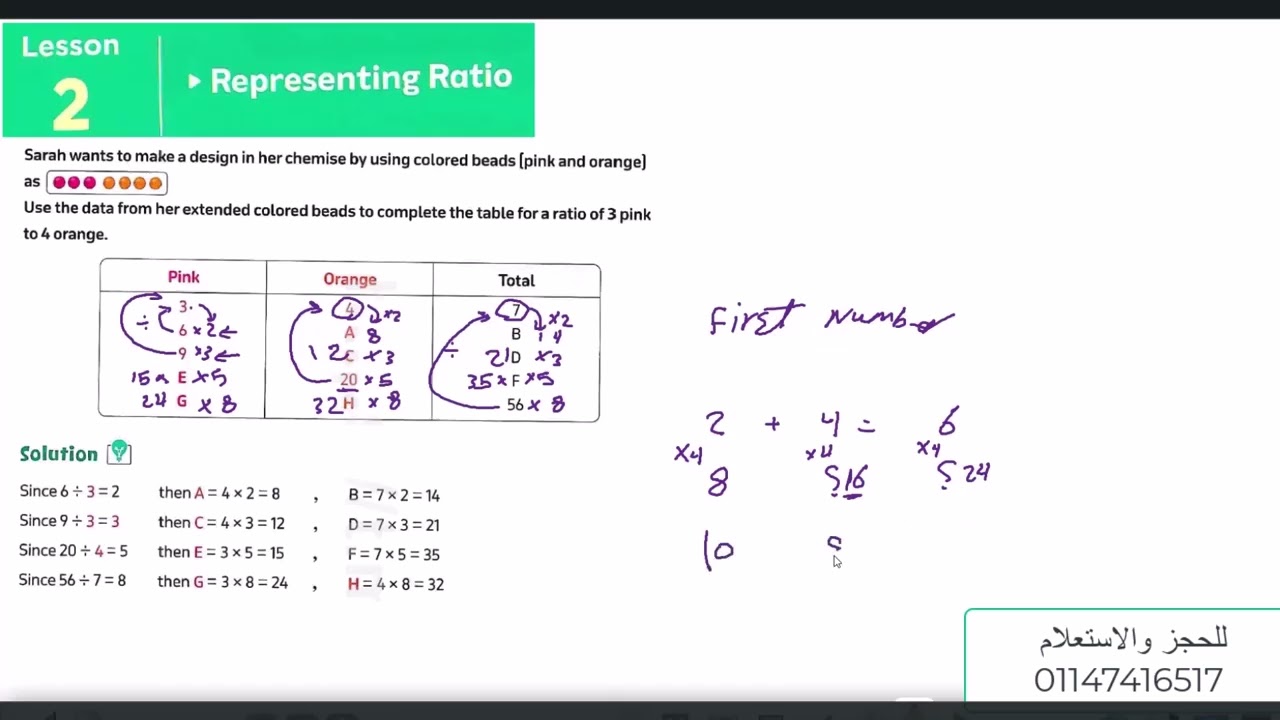 Lesson
2
▸ Representing Ratio
Sarah wants to make a design in her chemise by using colored beads [pink and orange]
as
Use the data from her extended colored beads to complete the table for a ratio of 3 pink
to 4 orange.
Pink Orange Total
3 4 ×2 7 ×2
÷ 6 ×2 A 8 B 14
9 ×3 12 C ×3 ÷ 21 D ×3
15 E ×5 20 ×5 35 × F ×5
24 G ×8 32 H ×8 56 ×8
Solution
Since 6 ÷ 3 = 2 then A = 4 × 2 = 8 , B = 7 × 2 = 14
Since 9 ÷ 3 = 3 then C = 4 × 3 = 12 , D = 7 × 3 = 21
Since 20 ÷ 4 = 5 then E = 3 × 5 = 15 , F = 7 × 5 = 35
Since 56 ÷ 7 = 8 then G = 3 × 8 = 24 , H = 4 × 8 = 32
First Number
2 + 4 = 6
×4 ×4 ×4
8 ؟ 16 ؟ 24
10 ؟
للحجز والاستعلام
01147416517